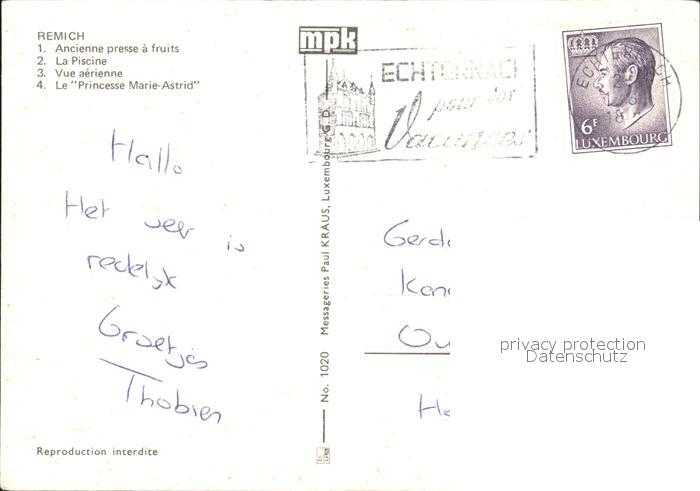 REMICH
1. Ancienne presse à fruits
2. La Piscine
3. Vue aérienne
4. Le "Princesse Marie-Astrid"
mpk
ECHTERNACH
pour vos
Vacances
6F
LUXEMBOURG
Hallo
Het weer is
redelijk
Groetjes
Thobien
No. 1020 Messageries Paul KRAUS, Luxembourg G. D.
Gerd
Kon
Ou
privacy protection
Datenschutz
Reproduction interdite